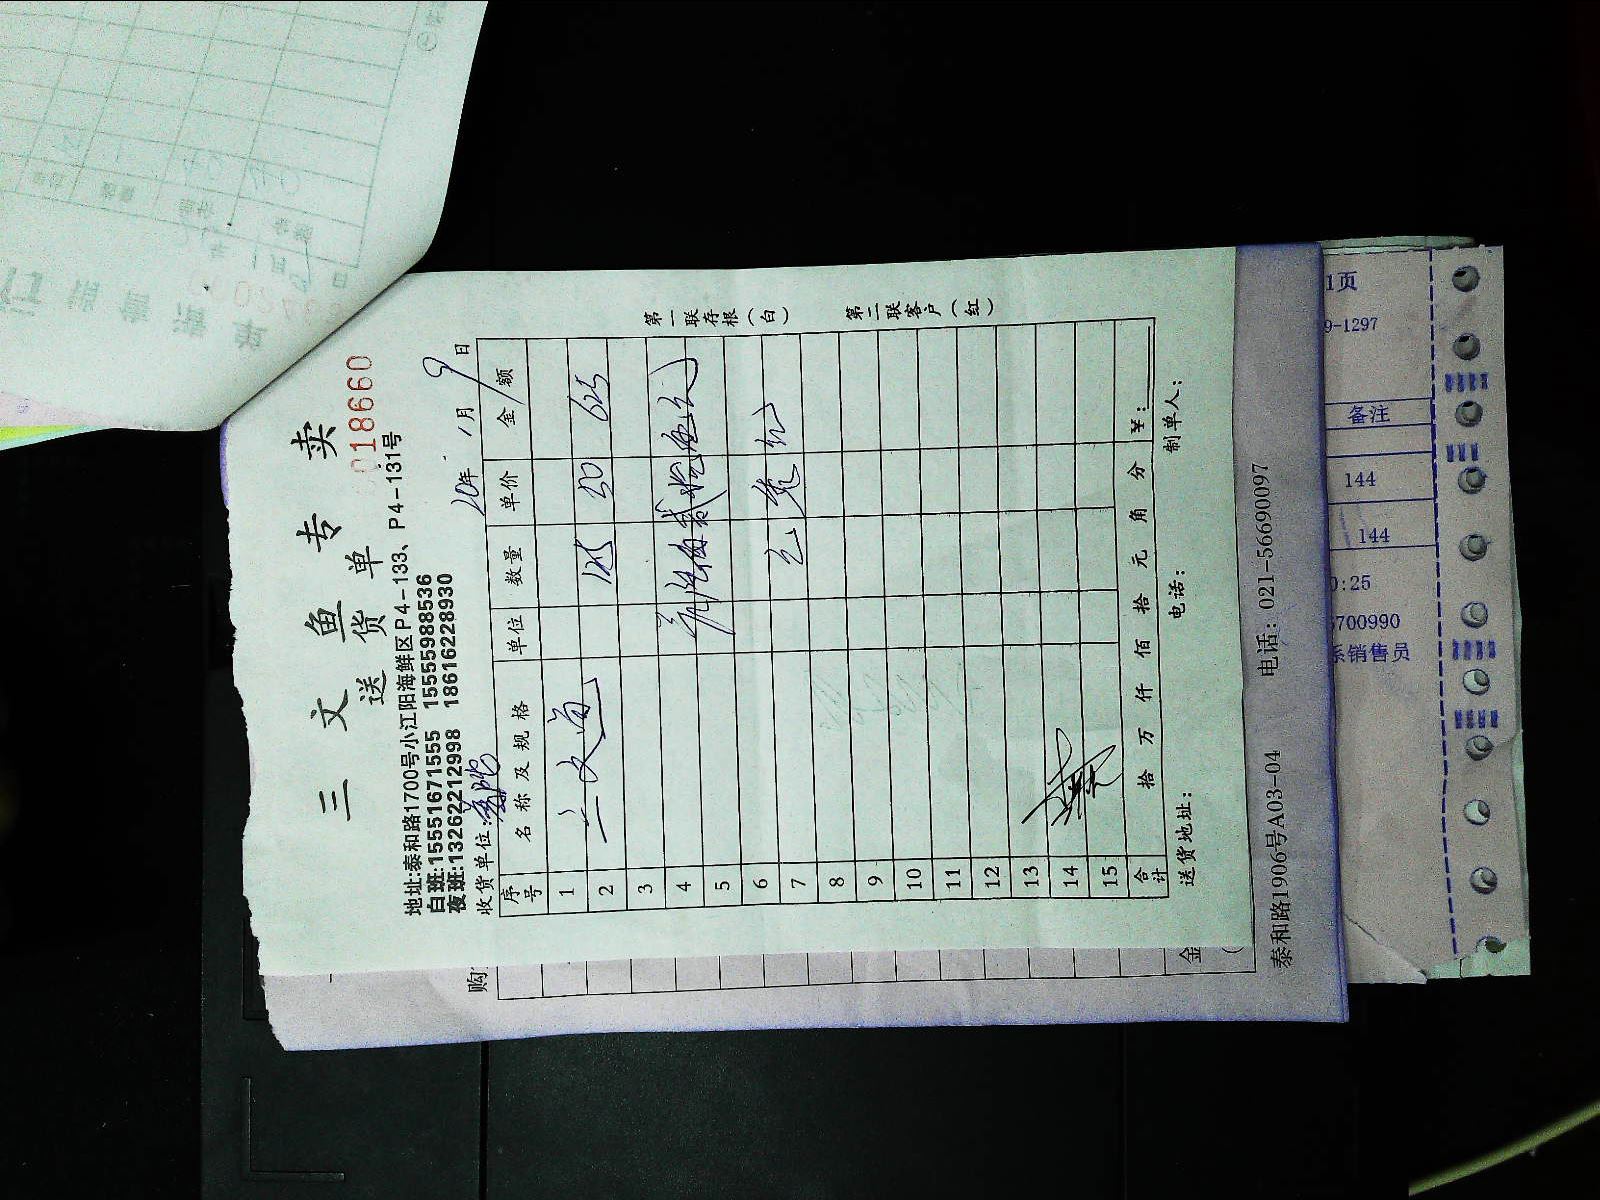 三文鱼专卖
送货单
018660
地址:泰和路1700号小江阳海鲜区P4-133、P4-131号
白班:15551671555 15555988536
夜班:13262212998 18616228930
收货单位:
20年 1月 9日
序号 名称及规格 单位 数量 单价 金额
1 三文鱼 12.5 50 625
2
3
4 陆佰贰拾伍元
5
6
7
8
9
10
11
12
13
14
15
合计 拾 万 仟 佰 拾 元 角 分 ¥:
送货地址: 电话: 制单人:
第一联存根(白) 第二联客户(红)
购
金
泰和路1906号A03-04 电话: 021-56690097
1页
9-1297
备注
144
144
0:25
5700990
系销售员